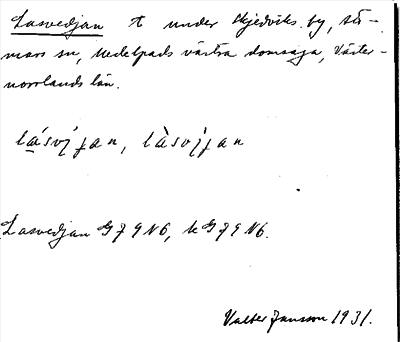 Lasvedjan t under Skjedviks by, Stö-
mars sn, Medelpads västra domsaga, Väster-
norrlands län.
Lasvedjan G7 9 N6, k G7 9 N6.
Valter Jansson 1931.